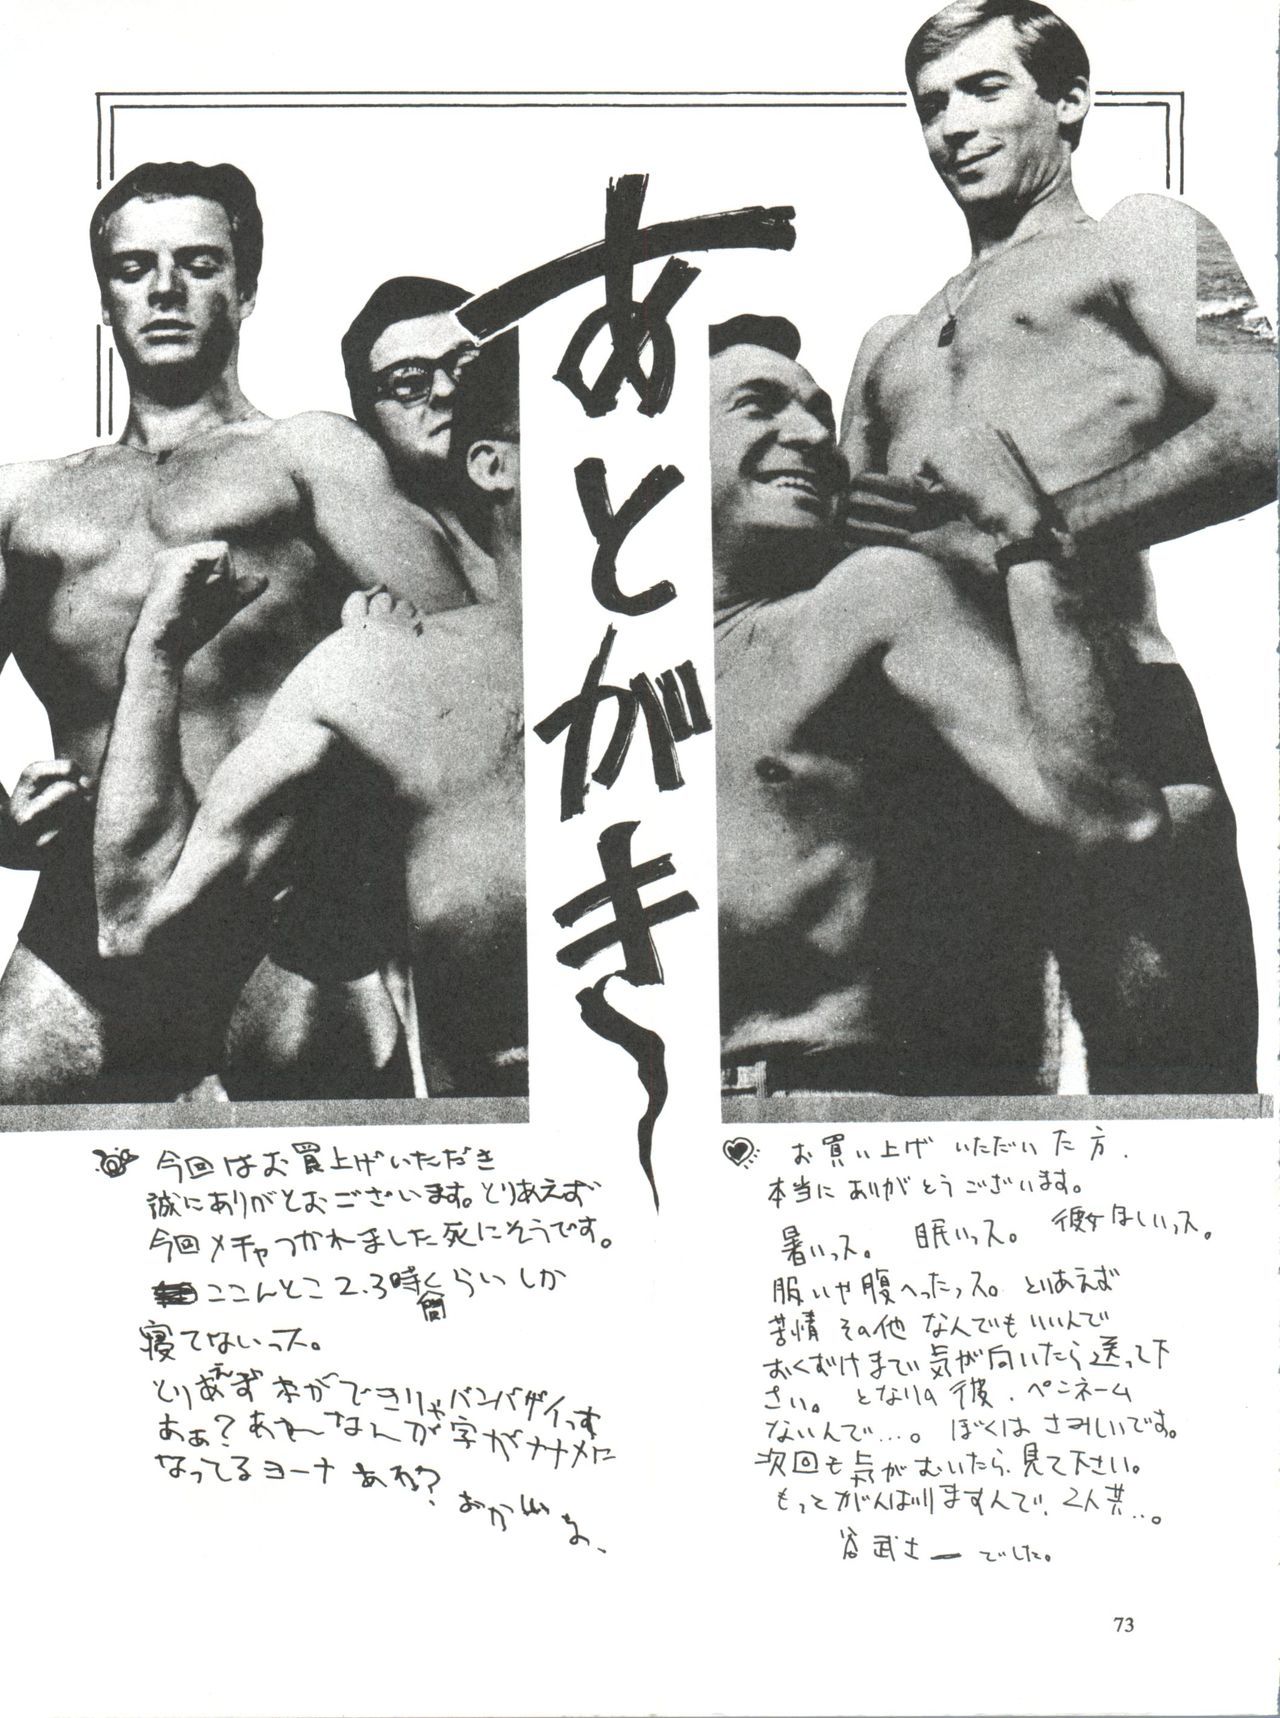 あとがき〜
今回はお買上げいただき
誠にありがとおございます。とりあえず
今回メチャつかれました死にそうです。
ここんとこ2.3時間くらいしか
寝てないっス。
とりあえず本ができりゃバンバザイっす
あぁ？あれ〜なんか字がナナメに
なってるヨーナ あれ？
おかしいな、
お買い上げ いただいた方、
本当に ありがとうございます。
暑いっス。 眠いっス。 彼女ほしいっス。
眠いや腹へったっス。とりあえず
苦情 その他 なんでもいいんで
おくずけまで気が向いたら送って下
さい。 となりの彼、ペンネーム
ないんで…。 ぼくは さみしいです。
次回も気がむいたら、見て下さい。
もっとがんばりますんで、2人共…。
谷武士ー でした。
73